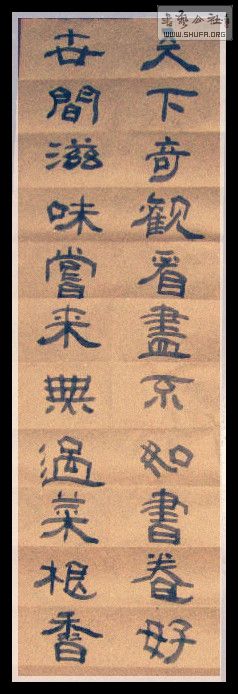 書藝公社
WWW.SHUFA.ORG
天下奇観看盡不如書卷好
世間滋味嘗来無過菜根香